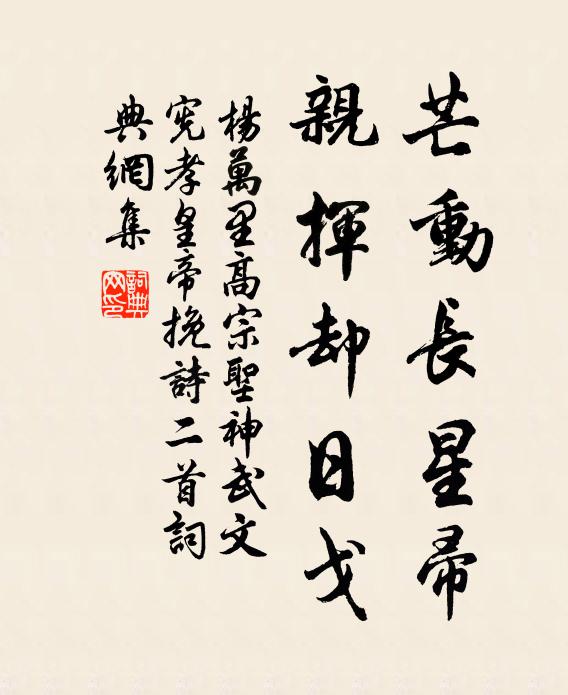 芒動長星帚
親揮却日戈
楊萬里高宗聖神武文
憲孝皇帝挽詩二首詞
典網集
詞典網印